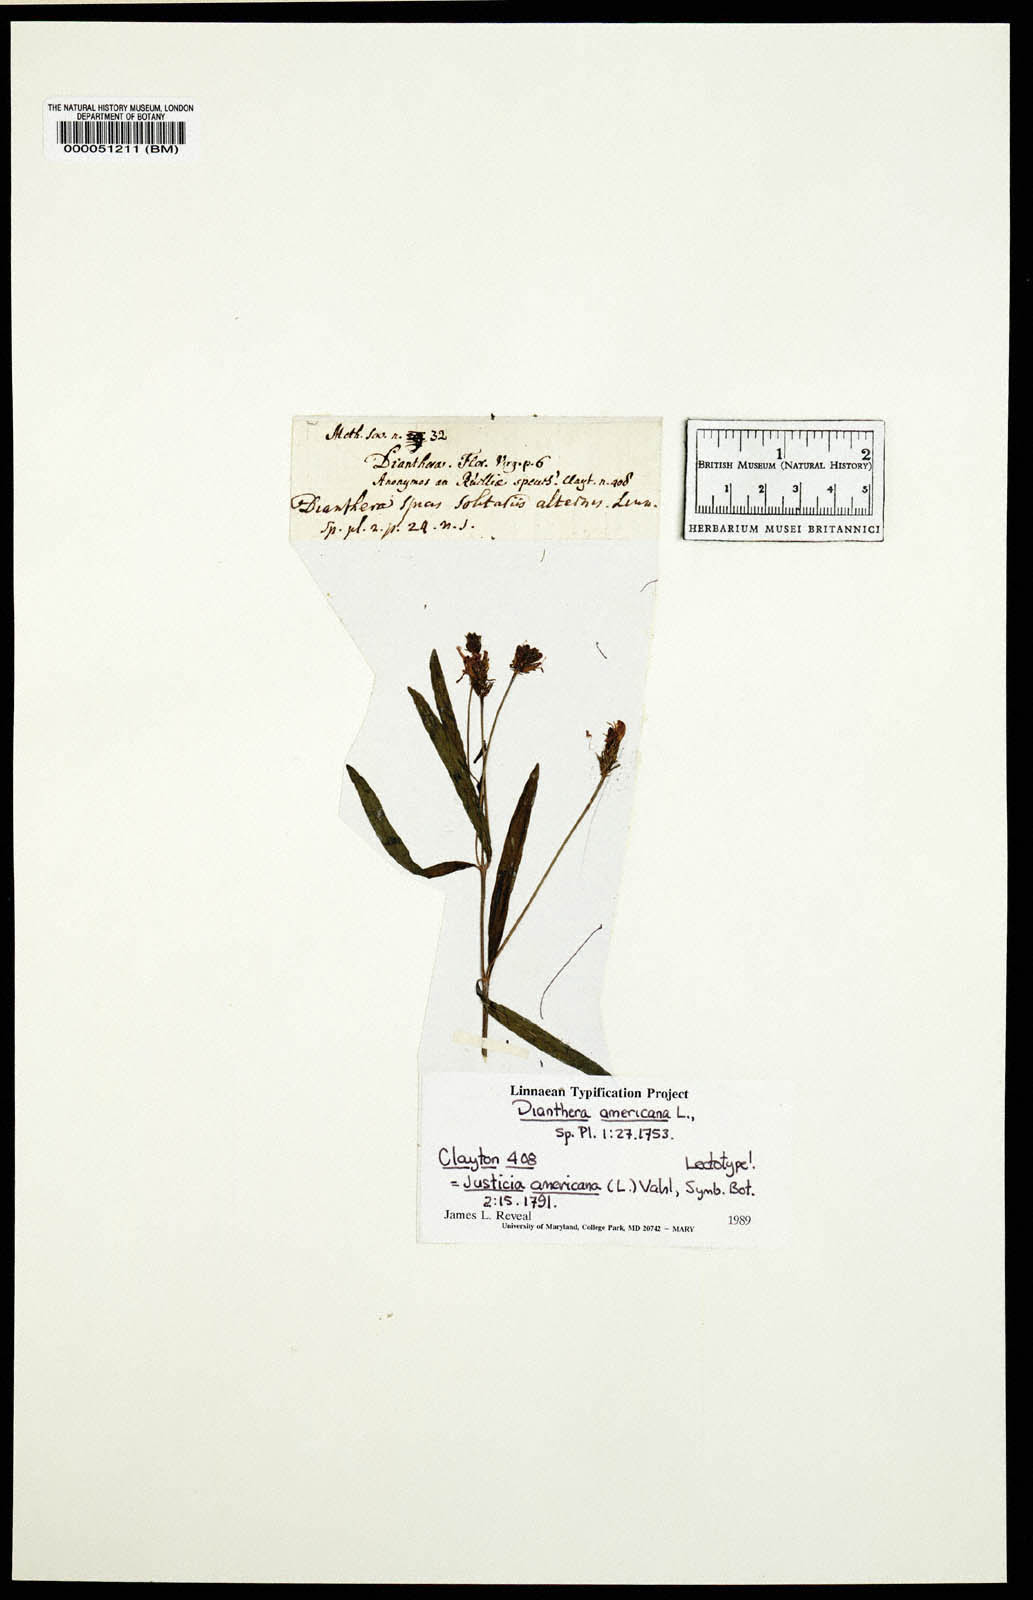 THE NATURAL HISTORY MUSEUM, LONDON
DEPARTMENT OF BOTANY
000051211 (BM)
Meth. Sex. n. 32
Dianthera. Flor. Virg. p. 6
Anonymos an Clayt. n. 408
Dianthera spicis solitariis alternis. Linn.
Sp. pl. 2. p. 24. n. 1.
1 2
BRITISH MUSEUM (NATURAL HISTORY)
1 2 3 4 5
HERBARIUM MUSEI BRITANNICI
Linnaean Typification Project
Dianthera americana L.,
Sp. Pl. 1:27.1753.
Clayton 408 Lectotype!
= Justicia americana (L.) Vahl, Symb. Bot.
2:15.1791.
James L. Reveal 1989
University of Maryland, College Park, MD 20742 – MARY